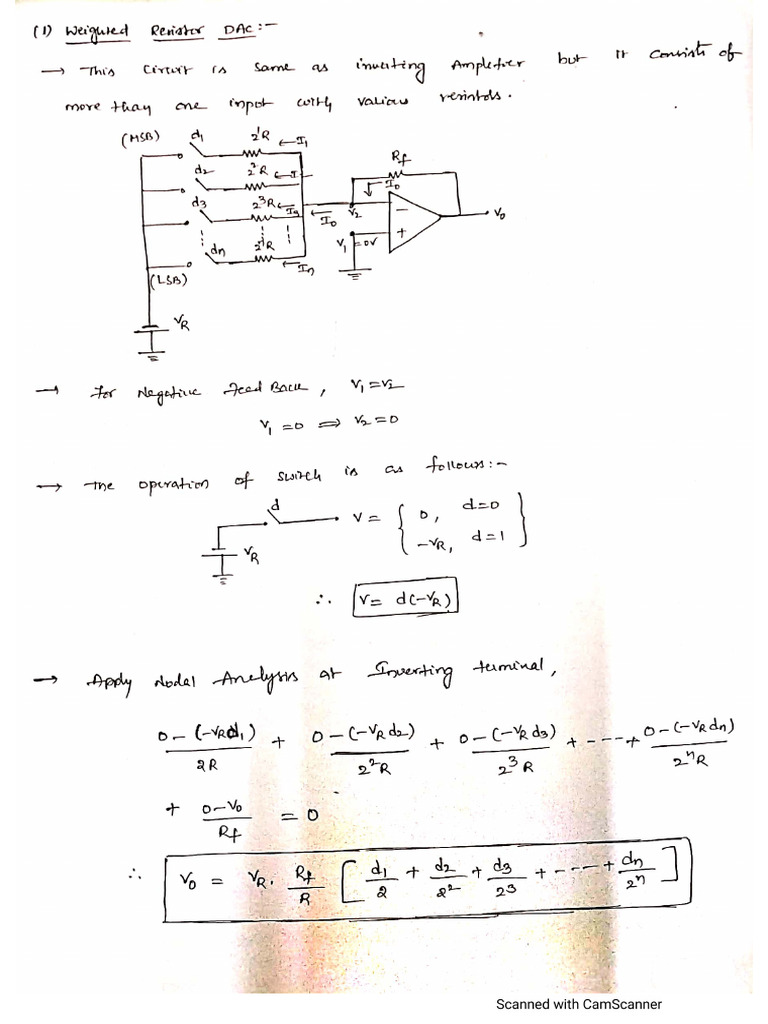 (1) Weighted Resistor DAC:-
→ This circuit is same as inverting Amplifier but it consists of
more than one input with various resistors.
(MSB) d1 2^1R ← I1
d2 2^2R ← I
d3 2^3R ← I3
dn 2^nR ← In
(LSB)
VR
Rf
I0
I0 V2
V1 =0V
V0
→ For Negative Feed Back , V1=V2
V1=0 ⟹ V2=0
→ The operation of switch is as follows:-
d V= { 0, d=0
-VR, d=1 }
VR
∴ V= d(-VR)
→ Apply Nodal Analysis at Inverting terminal,
0-(-VRd1)/2R + 0-(-VRd2)/2^2R + 0-(-VRd3)/2^3R + ---+ 0-(-VRdn)/2^nR
+ 0-V0/Rf = 0
∴ V0 = VR. Rf/R [ d1/2 + d2/2^2 + d3/2^3 + ---+ dn/2^n ]
Scanned with CamScanner